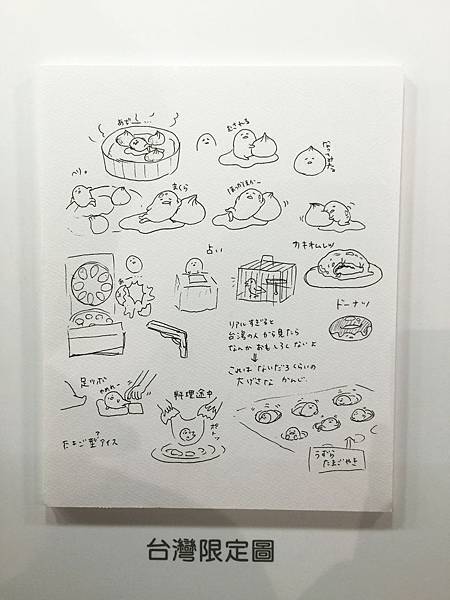 むされる
まくら
占い
カキオムレツ
ドーナツ
リアルすぎると
台湾の人から見たら
なんかおもしろくないよ
↓
これはないだろくらいの
大げさなかんじ
足ツボ
料理途中
たまご型?アイス
うずら
たまごやき
台灣限定圖